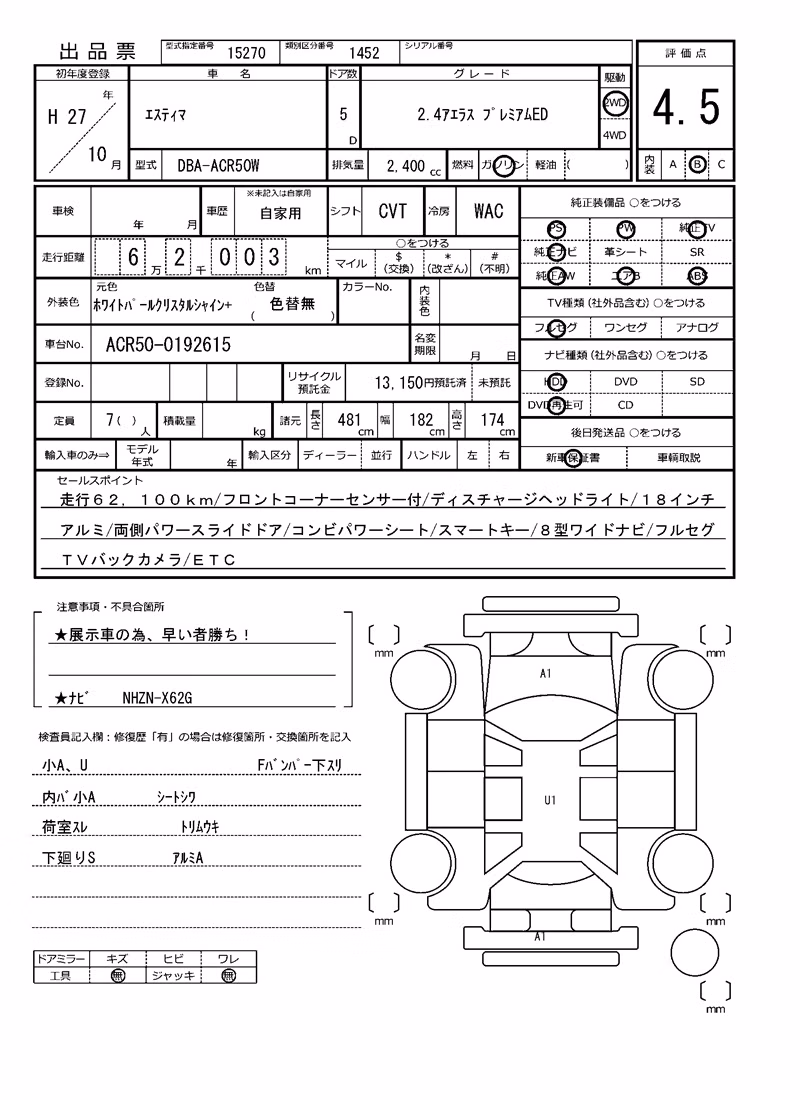 出品票
型式指定番号 15270 類別区分番号 1452 シリアル番号
評価点
4.5
内装 A B C
初年度登録 車名 ドア数 グレード 駆動
H 27 年 10 月
エスティマ
5 D
2.4アエラス プレミアムED
2WD
4WD
型式 DBA-ACR50W 排気量 2,400 cc 燃料 ガソリン 軽油 ( )
車検 年 月 車歴 ※未記入は自家用 自家用 シフト CVT 冷房 WAC
走行距離 6 万 2 千 0 0 3 km
○をつける
マイル $(交換) *(改ざん) #(不明)
外装色 元色 ホワイトパールクリスタルシャイン+ 色替 ( 色替無 ) カラーNo. 内装色
車台No. ACR50-0192615 名変期限 月 日
登録No. リサイクル預託金 13,150円預託済 未預託
定員 7( )人 積載量 kg 諸元 長さ 481 cm 幅 182 cm 高さ 174 cm
輸入車のみ⇒ モデル年式 年 輸入区分 ディーラー 並行 ハンドル 左 右
純正装備品 ○をつける
PS PW 純正TV
純正ナビ 革シート SR
純正AW エアB ABS
TV種類(社外品含む)○をつける
フルセグ ワンセグ アナログ
ナビ種類(社外品含む)○をつける
HDD DVD SD
DVD再生可 CD
後日発送品 ○をつける
新車保証書 車輌取説
セールスポイント
走行62,100km/フロントコーナーセンサー付/ディスチャージヘッドライト/18インチ
アルミ/両側パワースライドドア/コンビパワーシート/スマートキー/8型ワイドナビ/フルセグ
TVバックカメラ/ETC
注意事項・不具合箇所
★展示車の為、早い者勝ち!
★ナビ NHZN-X62G
検査員記入欄:修復歴「有」の場合は修復箇所・交換箇所を記入
小A、U Fバンパー下スリ
内バ小A シートシワ
荷室スレ トリムウキ
下廻りS アルミA
ドアミラー キズ ヒビ ワレ
工具 無 ジャッキ 無
mm
mm
A1
U1
A1
mm
mm
mm